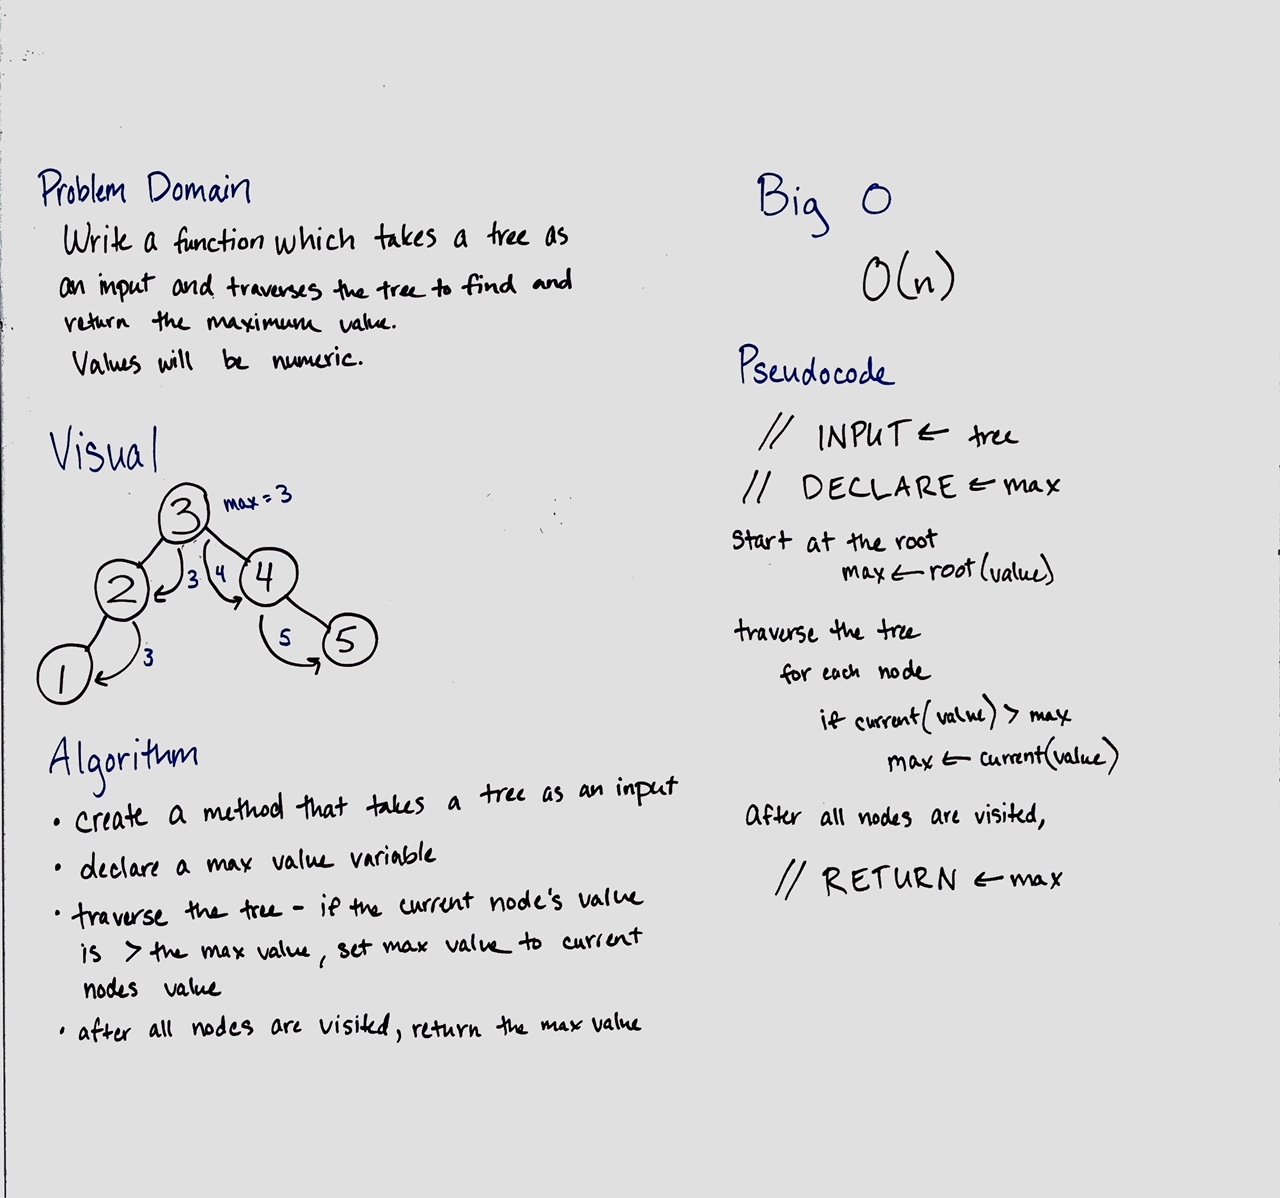 Problem Domain
Write a function which takes a tree as
an input and traverses the tree to find and
return the maximum value.
Values will be numeric.
Visual
3 max = 3
2 3 4 4
1 3 5 5
Algorithm
• create a method that takes a tree as an input
• declare a max value variable
• traverse the tree - if the current node's value
is > the max value, set max value to current
nodes value
• after all nodes are visited, return the max value
Big O
O(n)
Pseudocode
// INPUT ← tree
// DECLARE ← max
start at the root
max ← root(value)
traverse the tree
for each node
if current(value) > max
max ← current(value)
after all nodes are visited,
// RETURN ← max